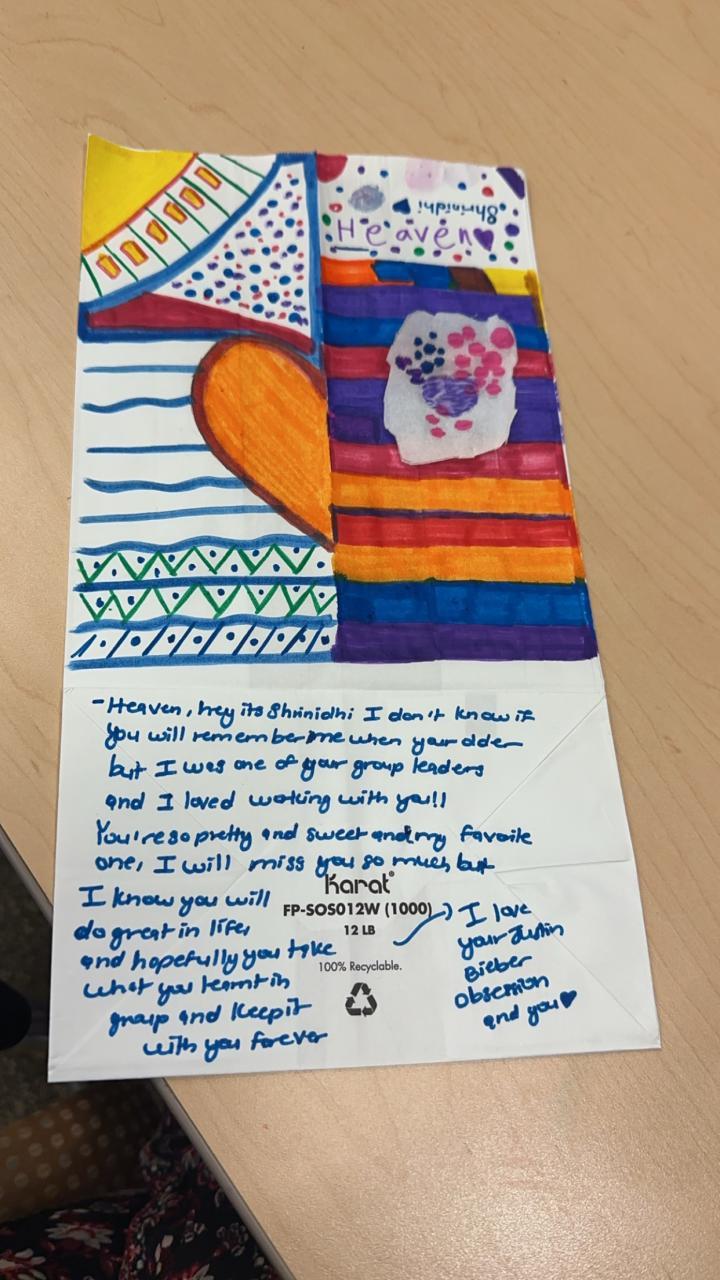 Shrinidhi
Heaven
-Heaven, hey its Shrinidhi I don't know if
you will remember me when your older
but I was one of your group leaders
and I loved working with you!!
You're so pretty and sweet and my favorite
one, I will miss you so much but
I know you will
do great in life,
and hopefully you take
what you learnt in
group and keep it
with you forever
Karat®
FP-SOS012W (1000)
12 LB
100% Recyclable.
I love
your Justin
Bieber
obsession
and you♥